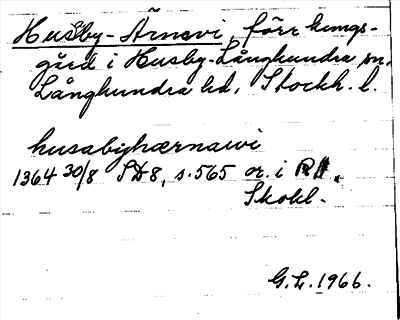 Husby-Ärnavi, förr kungs-
gård i Husby-Långhundra sn,
Långhundra hd, Stockh. l.
husabyhærnawi
1364 30/8 SD8, s. 565 or. i RA.
Skokl.
G.L. 1966.